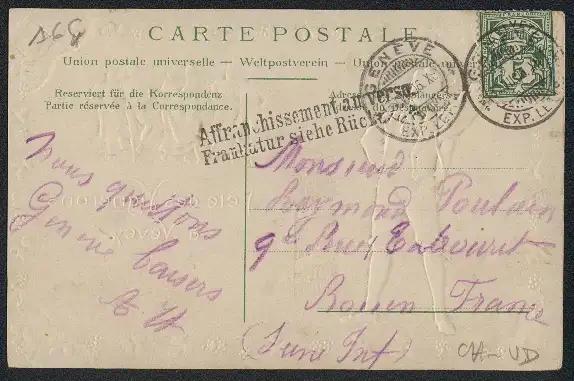 D68
CARTE POSTALE
Union postale universelle — Weltpostverein — Union postale
Reserviert für die Korrespondenz
Partie réservée à la Correspondance.
Affranchissement au verso
Frankatur siehe Rück
GENÈVE
EXP. LETT
GENÈVE
EXP. LETT
Nous quittons
Genève baisers
Monsieur
Raymond Poulain
9 Rue
Rouen France
(Seine Inf)
CH-VD